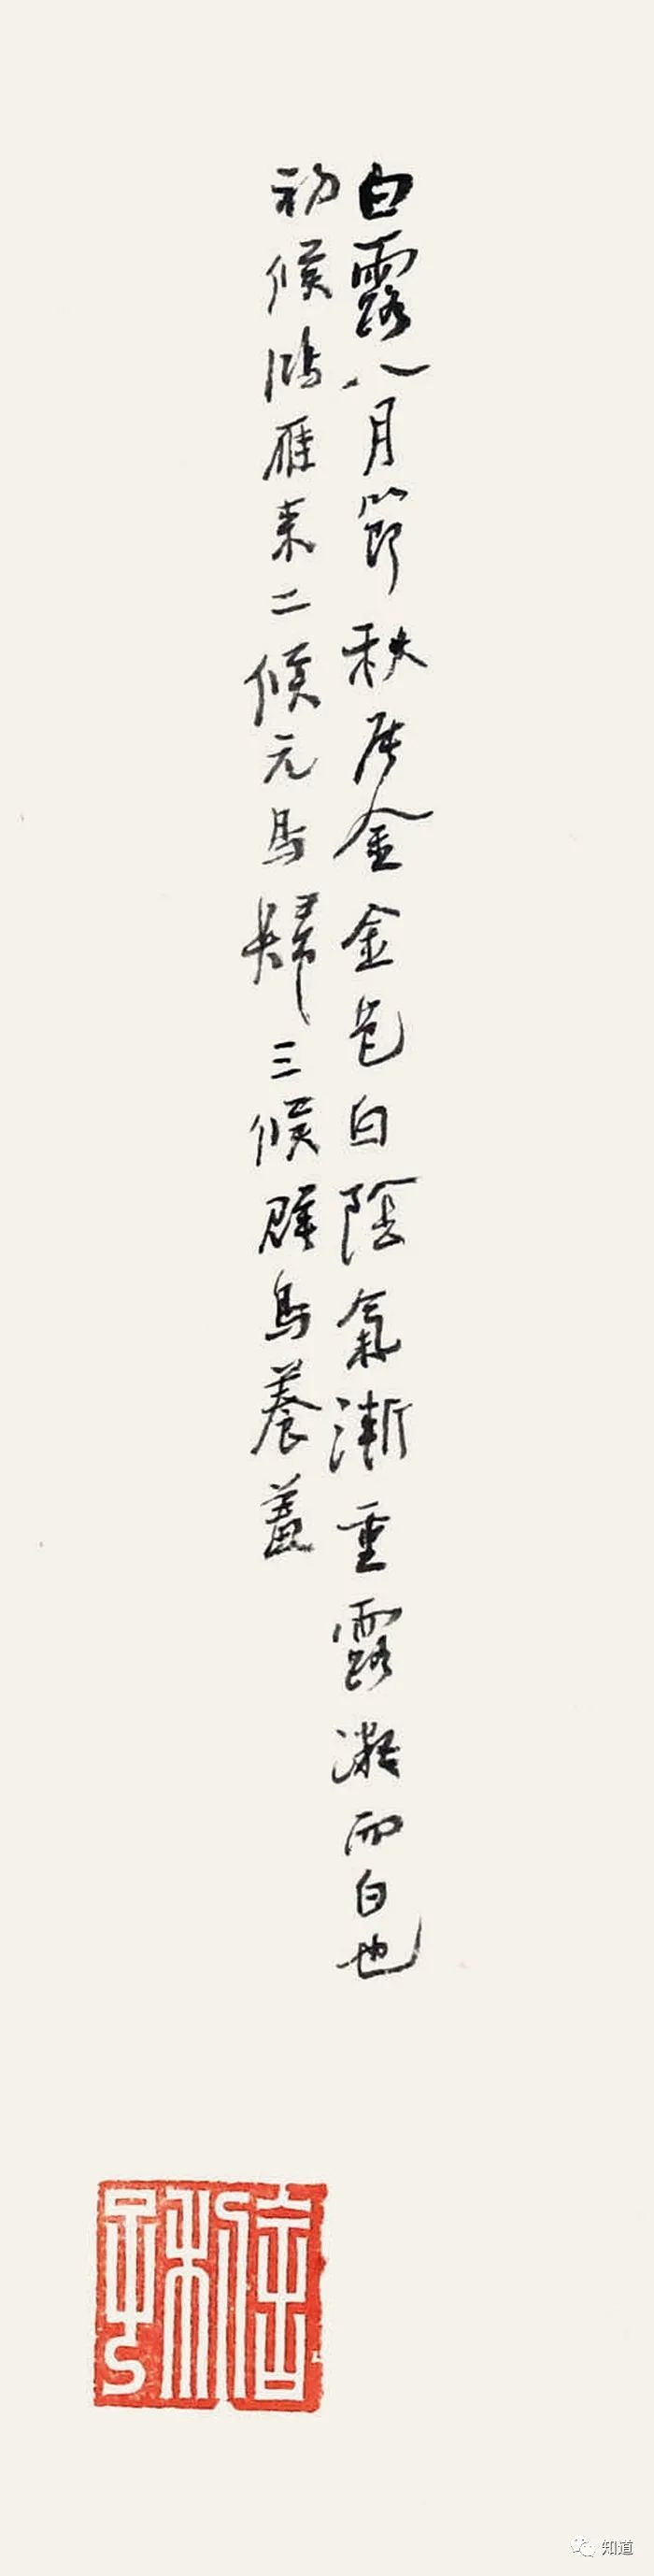 白露八月節秋属金金色白陰氣漸重露凝而白也
初候鴻雁来二候元鳥歸三候群鳥養羞
知道